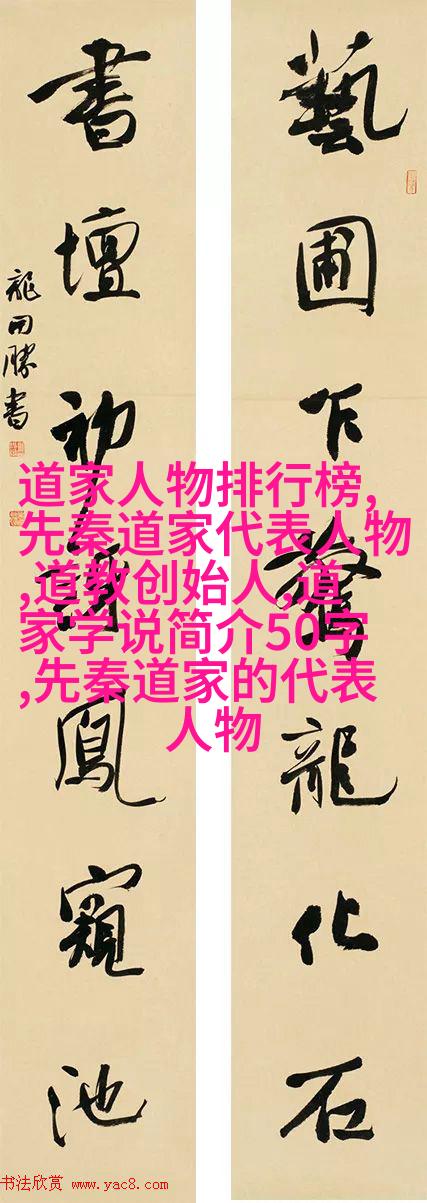 藝圃乍驚龍化石
書壇初鳳窺池
龍開勝書
道家人物排行榜,
先秦道家代表人物
,道教创始人,道
家学说简介50字
,先秦道家的代表
人物
书法欣赏 www.yac8.com